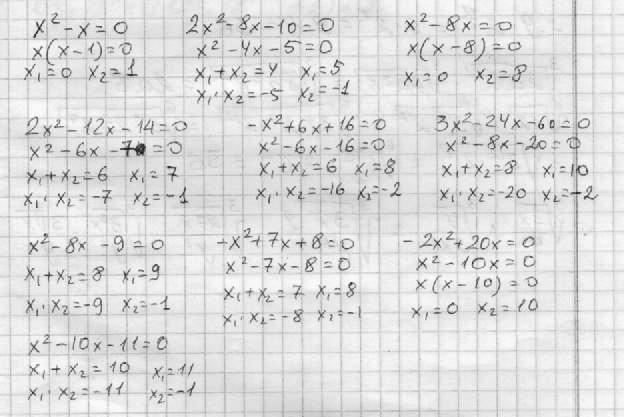 x² - x = 0
x(x - 1) = 0
x₁ = 0 x₂ = 1
2x² - 8x - 10 = 0
x² - 4x - 5 = 0
x₁ + x₂ = 4 x₁ = 5
x₁ · x₂ = -5 x₂ = -1
x² - 8x = 0
x(x - 8) = 0
x₁ = 0 x₂ = 8
2x² - 12x - 14 = 0
x² - 6x - 7 = 0
x₁ + x₂ = 6 x₁ = 7
x₁ · x₂ = -7 x₂ = -1
-x² + 6x + 16 = 0
x² - 6x - 16 = 0
x₁ + x₂ = 6 x₁ = 8
x₁ · x₂ = -16 x₂ = -2
3x² - 24x - 60 = 0
x² - 8x - 20 = 0
x₁ + x₂ = 8 x₁ = 10
x₁ · x₂ = -20 x₂ = -2
x² - 8x - 9 = 0
x₁ + x₂ = 8 x₁ = 9
x₁ · x₂ = -9 x₂ = -1
-x² + 7x + 8 = 0
x² - 7x - 8 = 0
x₁ + x₂ = 7 x₁ = 8
x₁ · x₂ = -8 x₂ = -1
-2x² + 20x = 0
x² - 10x = 0
x(x - 10) = 0
x₁ = 0 x₂ = 10
x² - 10x - 11 = 0
x₁ + x₂ = 10 x₁ = 11
x₁ · x₂ = -11 x₂ = -1